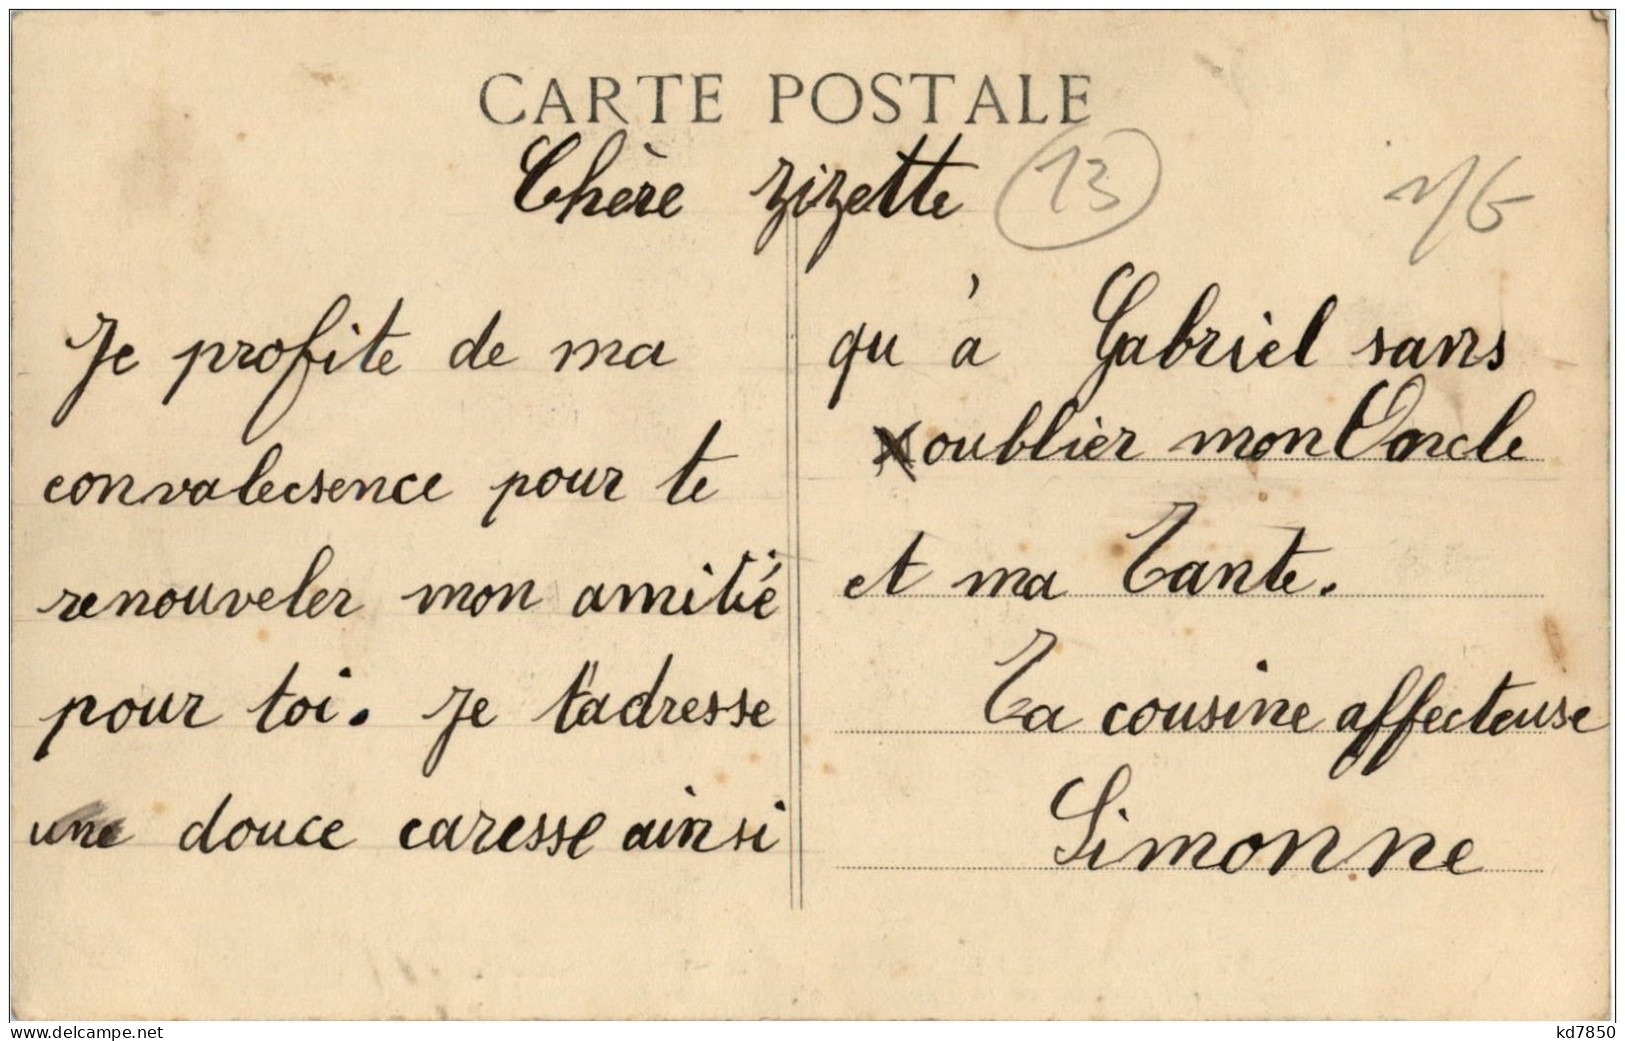 CARTE POSTALE
Chère Zizette
13
Je profite de ma
convalecsence pour te
renouveler mon amitié
pour toi. Je t'adresse
une douce caresse ainsi
qu'à Gabriel sans
oublier mon Oncle
et ma Tante.
Ta cousine affecteuse
Simonne
www.delcampe.net
kd7850